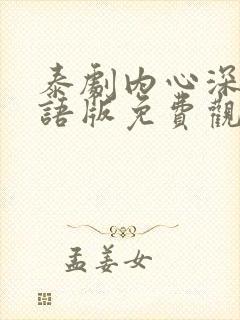 泰劇內心深
語版免費觀
孟姜女